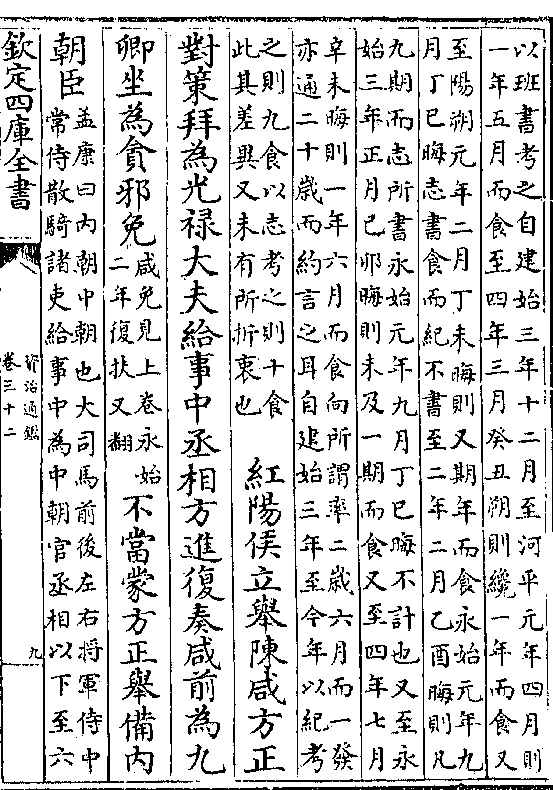 以班書考之自建始三年十二月至河平元年四月則
一年五月而食至四年三月癸丑朔則纔一年而食又
至陽朔元年二月丁未晦則又期年而食永始元年九
月丁巳晦志書食而紀不書至二年二月乙酉晦則凡
九期而志所書永始元年九月丁巳晦不計也又至永
始三年正月己卯晦則未及一期而食又至四年七月
辛未晦則一年六月而食向所謂率二歲六月而一發
亦通二十歲而約言之耳自建始三年至今年以紀考
之則九食以志考之則十食
此其差異又未有所折衷也
紅陽侯立舉陳咸方正
對策拜為光禄大夫給事中丞相方進復奏咸前為九
卿坐為貪邪免
咸免見上卷永始
二年復扶又翻
不當蒙方正舉備内
朝臣
孟康曰内朝中朝也大司馬前後左右將軍侍中
常侍散騎諸吏給事中為中朝官丞相以下至六
欽定四庫全書
資治通鑑
卷三十二
九